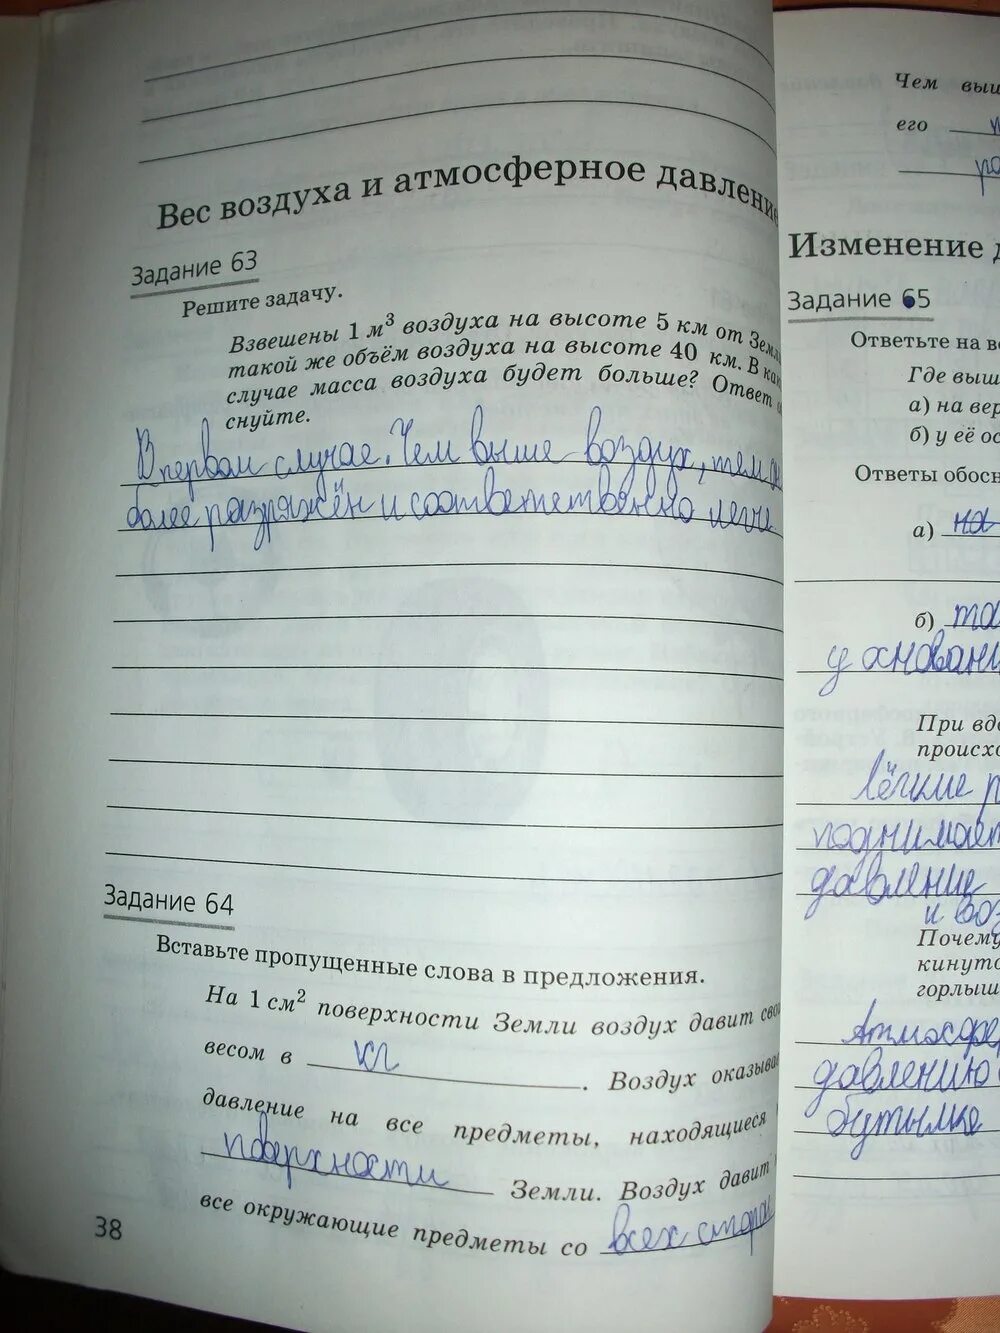 Вес воздуха и атмосферное давление
Задание 63
Решите задачу.
Взвешены 1 м³ воздуха на высоте 5 км от Земл
такой же объём воздуха на высоте 40 км. В как
случае масса воздуха будет больше? Ответ о
снуйте.
В первом случае. Чем выше воздух, тем
более разряжён и соответственно легче
Задание 64
Вставьте пропущенные слова в предложения.
На 1 см² поверхности Земли воздух давит сво
весом в кг . Воздух оказыва
давление на все предметы, находящиеся
поверхности Земли. Воздух давит
все окружающие предметы со всех сторон
38
Чем выш
его
Изменение д
Задание 65
Ответьте на в
Где выш
а) на вер
б) у её ос
Ответы обосн
а) на
б)
у основани
При вд
происхо
Лёгкие р
поднимает
давление
и воз
Почему
кинуто
горлыш
Атмосфер
давлению
бутылке